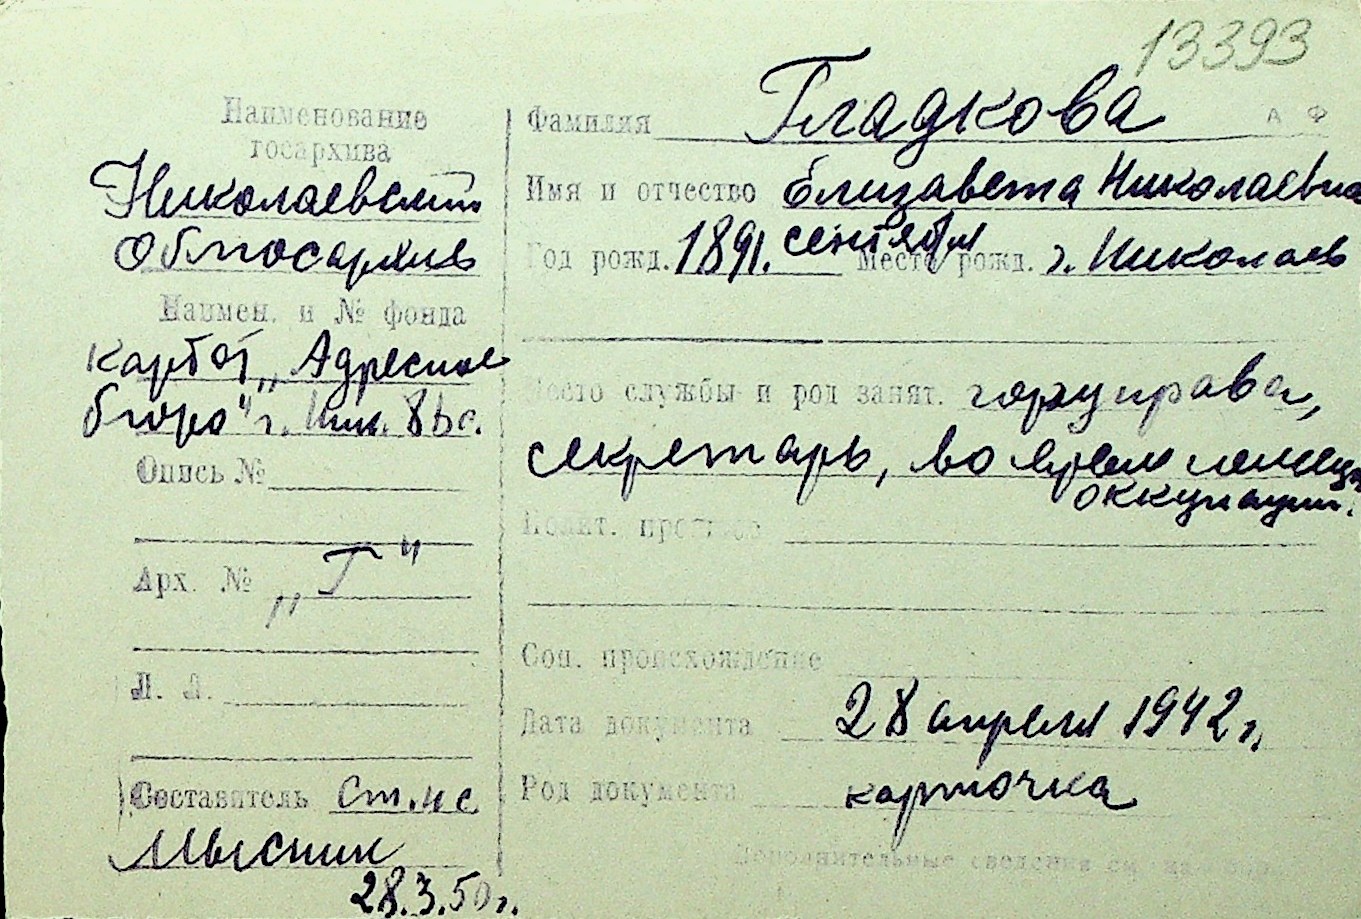 13393
Наименование
госархива
Николаевский
Облгосархив
Наимен. и № фонда
картот. „Адресное
бюро" г. Ник.
Опись №
Арх. № „Г"
Л. Л.
Составитель ст. нс
Мысник
28.3.50 г.
Фамилия Гладкова А Ф
Имя и отчество Елизавета Николаевна
Год рожд. 1891. сентября Место рожд. г. Николаев
Место службы и род занят. горуправа,
секретарь, во время немецк.
оккупации.
Полит. прогноз
Соц. происхождение
Дата документа 28 апреля 1942 г.
Род документа карточка
Дополнительные сведения см. на обор.